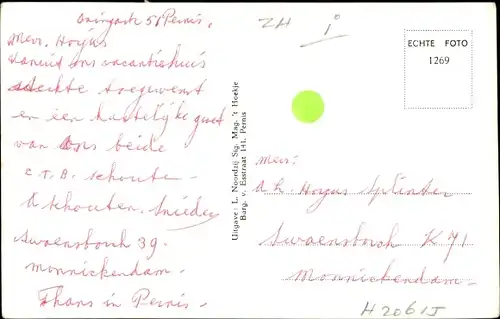 51 Pernis.
Mevr. Hoyus
Vanuit ons vacantiehuis
toegewenst
en een hartelijke groet
van ons beide
C.T.B. Schouten -
A Schouten. Snieder
Swaensborch 39 -
Monnickendam -
Thans in Pernis -
ZH i
ECHTE FOTO
1269
Uitgave: L. Noordzij Sig. Mag. 't Hoekje
Burg. v. Esstraat 141. Pernis
Mevr:
A. L. Hoyus Splinter
Swaensborch K 71
Monnickendam
H2061J